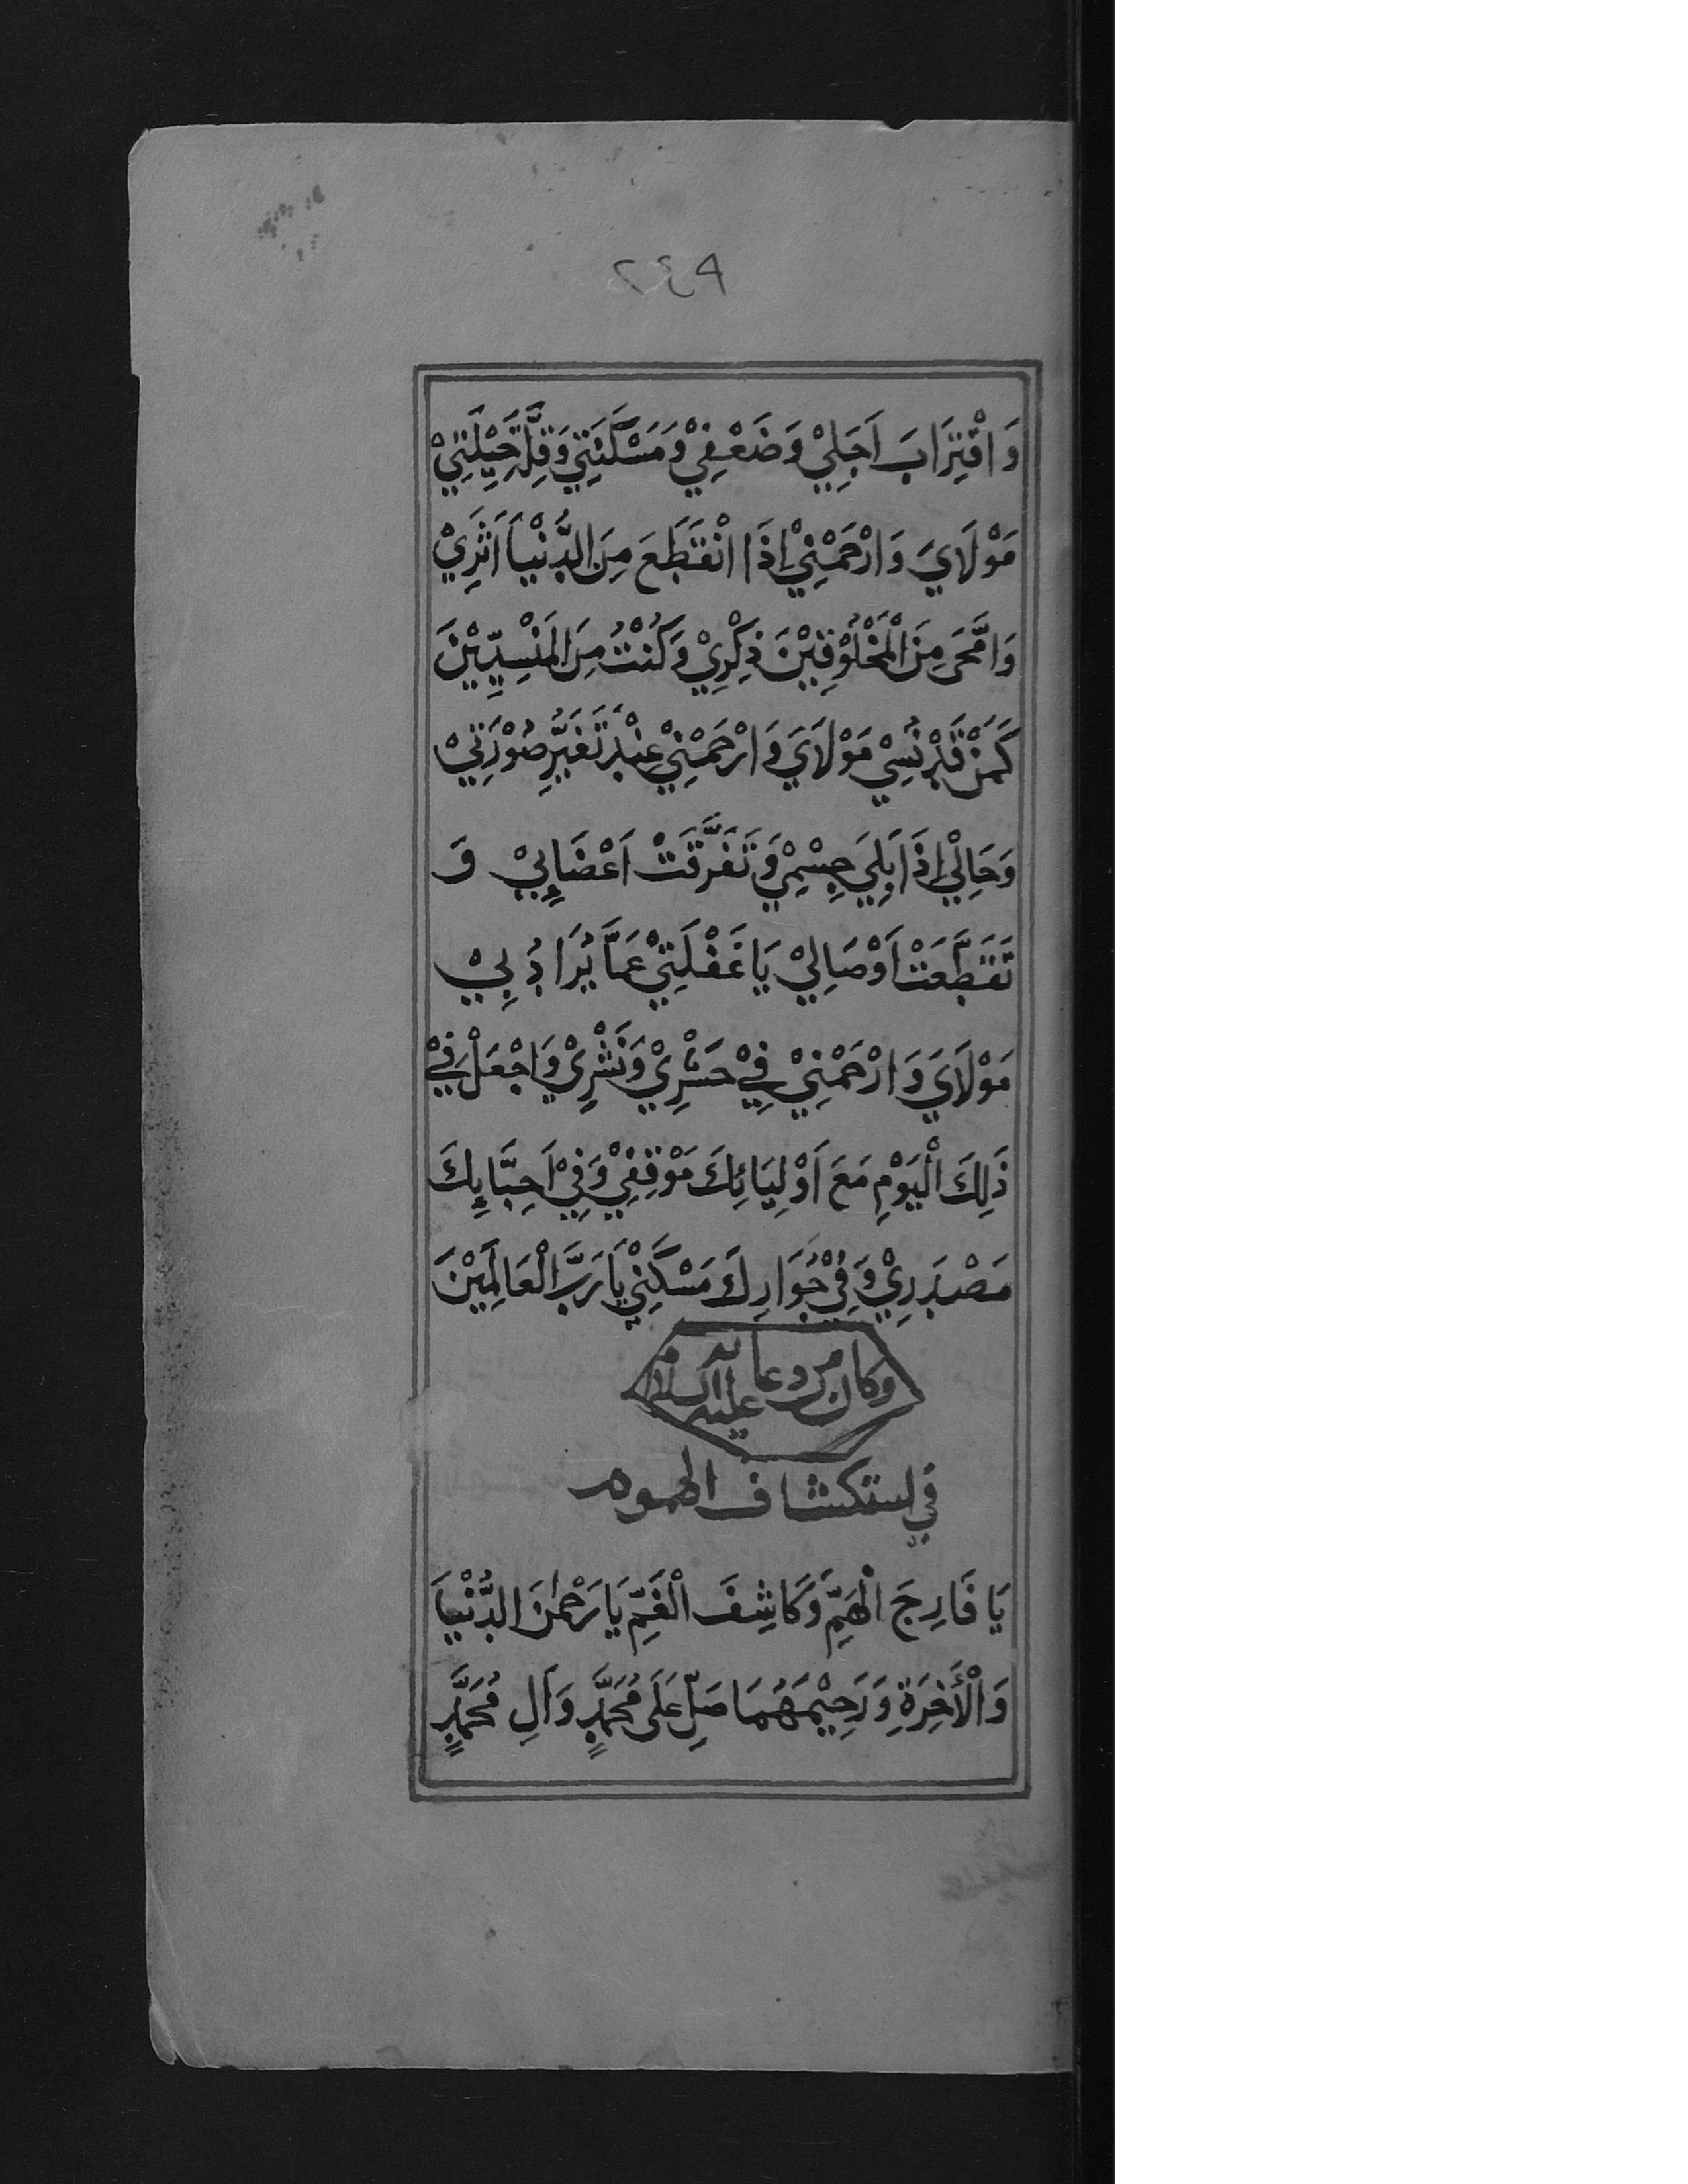 ٢٤٩
وَاقْتِرَابَ اَجَلِيْ وَضَعْفِيْ وَمَسْكَنَتِيْ وَقِلَّةَ حِيْلَتِيْ
مَوْلَايَ وَارْحَمْنِيْ اِذَا انْقَطَعَ مِنَ الدُّنْيَا اَثَرِيْ
وَامَّحَى مِنَ الْمَخْلُوْقِيْنَ ذِكْرِيْ وَكُنْتُ مِنَ الْمَنْسِيِّيْنَ
كَمَنْ قَدْ نُسِيْ مَوْلَايَ وَارْحَمْنِيْ عِنْدَ تَغَيُّرِ صُوْرَتِيْ
وَحَالِيْ اِذَا بَلِيَ جِسْمِيْ وَتَفَرَّقَتْ اَعْضَائِيْ وَ
تَقَطَّعَتْ اَوْصَالِيْ يَا غَفْلَتِيْ عَمَّا يُرَادُ بِيْ
مَوْلَايَ وَارْحَمْنِيْ فِيْ حَشْرِيْ وَنَشْرِيْ وَاجْعَلْ فِيْ
ذَلِكَ الْيَوْمِ مَعَ اَوْلِيَائِكَ مَوْقِفِيْ وَفِيْ اَحِبَّائِكَ
مَصْدَرِيْ وَفِيْ جُوَارِكَ مَسْكَنِيْ يَا رَبَّ الْعَالَمِيْنَ
وكان من دعائه عليه السلام
في استكشاف الهموم
يَا فَارِجَ الْهَمِّ وَكَاشِفَ الْغَمِّ يَا رَحْمٰنَ الدُّنْيَا
وَالْأَخِرَةِ وَرَحِيْمَهُمَا صَلِّ عَلَى مُحَمَّدٍ وَآلِ مُحَمَّدٍ